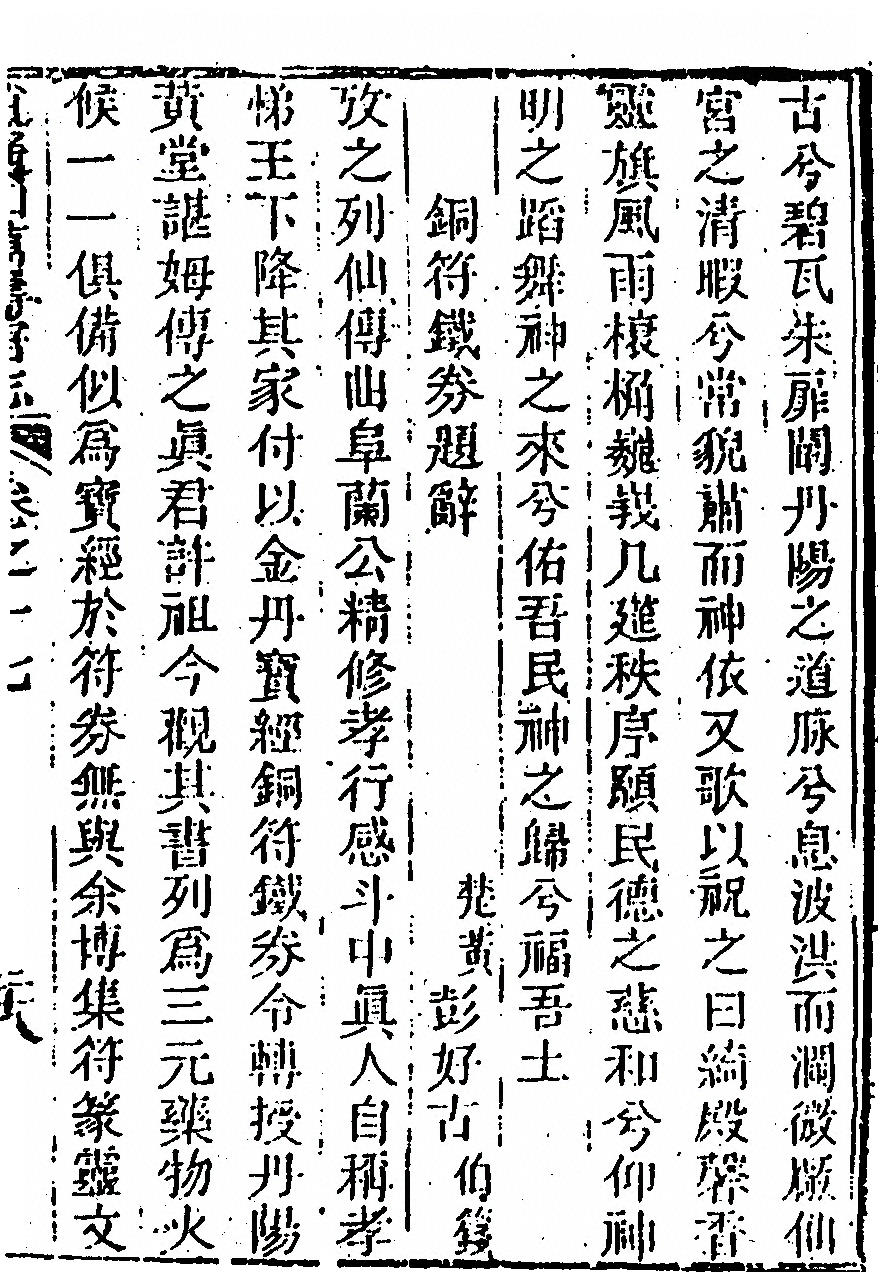 古兮碧瓦朱扉閟丹陽之道脉兮息波洪而瀾微橛仙
宮之清暇兮常貌肅而神依又歌以祝之曰綺殿馨香
靈旗風雨榱桷巍峩几筵秩序願民德之慈和兮仰神
明之蹈舞神之來兮佑吾民神之歸兮福吾土
銅符鐵券題辭
楚黃彭好古伯籛
攷之列仙傳曲阜蘭公精修孝行感斗中眞人自稱孝
悌王下降其家付以金丹寶經銅符鐵券令轉授丹陽
黃堂諶姆傳之眞君許祖今觀其書列爲三元藥物火
候一一俱備似爲寶經於符券無與余博集符篆靈文
卷之十七